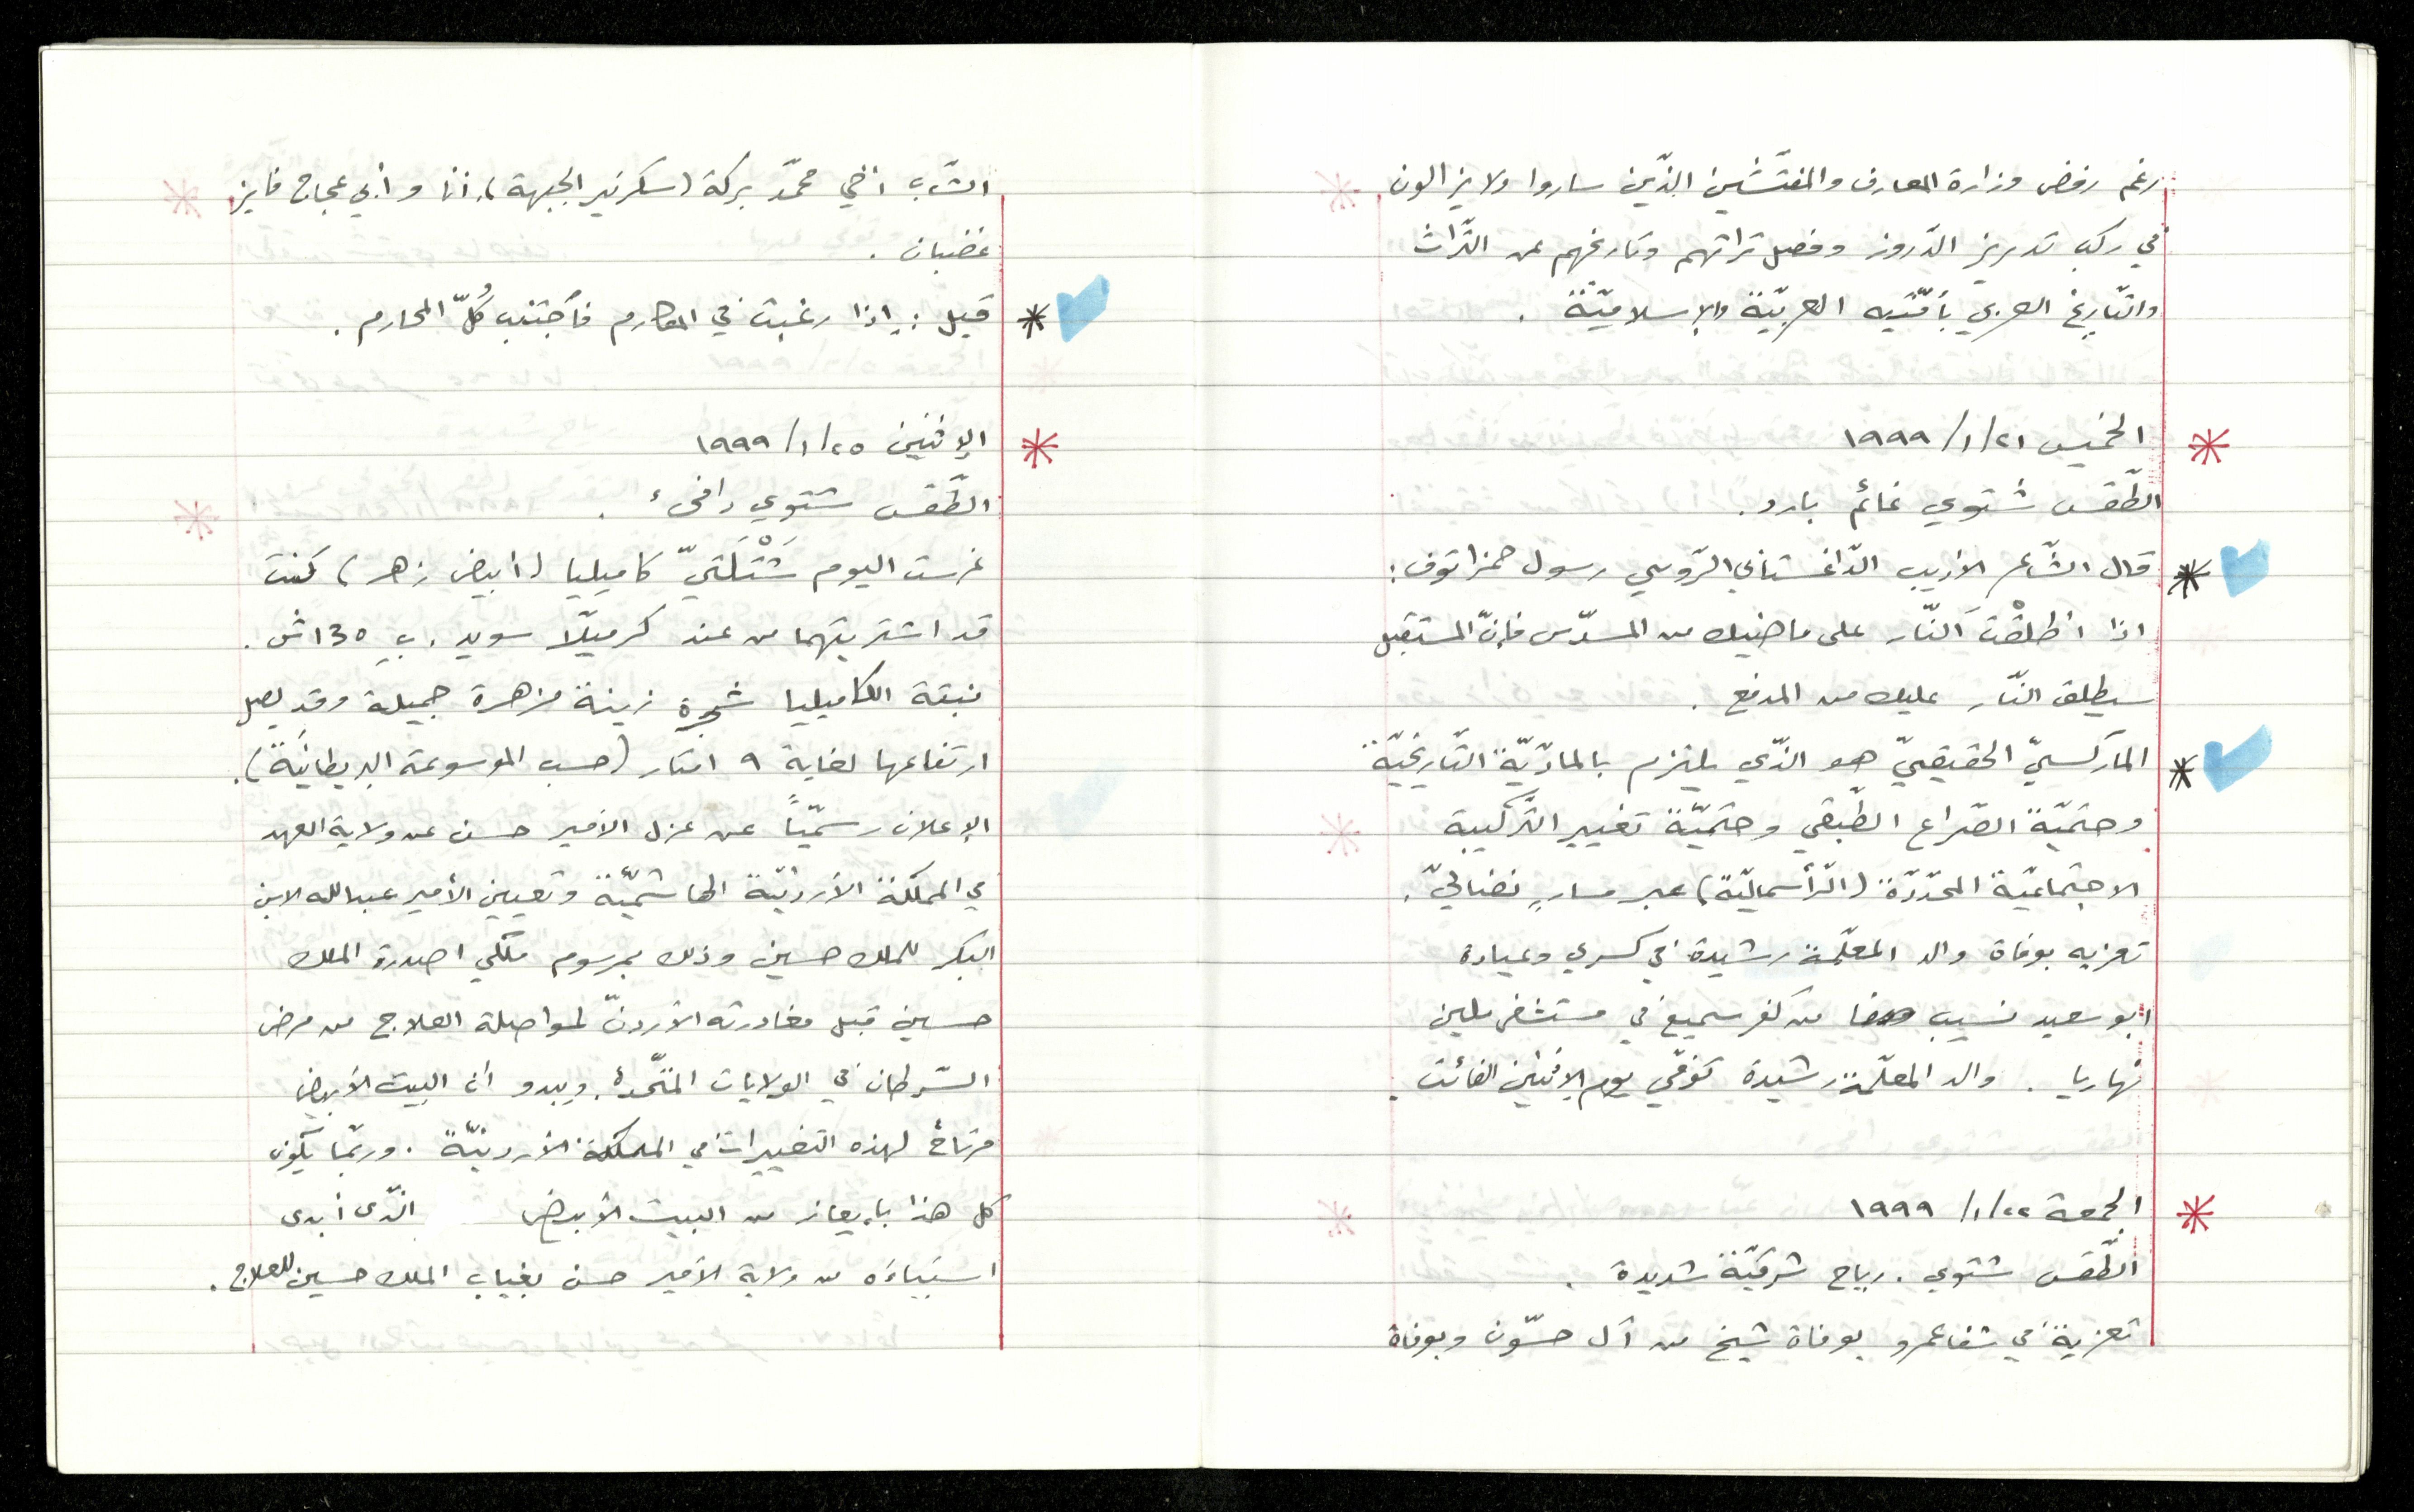 رغم رفض وزارة المعارف والمفتّشين الذّين ساروا ولا يزالون
في ركب تدريز الدّروز وفصل تراثهم وتاريخهم عن التّراث
والتّاريخ العربي بأمّتيه العربيّة والإسلاميّة .
الخميس ٢١/ ١/ ١٩٩٩
الطّقس شتوي غائم بارد.
قال الشّاعر الأديب الدّاغستاني الرّوسي رسول حمزاتوف :
اذا اطلقْتَ النّار على ماضيك من المسدّس فإنّ المستقبل
سيطلق النّار عليك من المدفع .
الماركسيّ الحقيقيّ هو الذّي يلتزم بالمادّيّة التّاريخيّة
وحتميّة الصّراع الطّبقي وحتميّة تغيير التّركيبة
الاجتماعيّة المحدّدة (الرّأسماليّة) عبر مسارٍ نضاليّ .
تعزيه بوفاة والد المعلّمة رشيدة في كسرى وعيادة
ابو سعيد نسيب من كفر سميع في مستشفى
نهاريا . والد المعلّمة رشيدة توفّي يوم الإثنين الفائت .
الجمعة ٢٢/ ١/ ١٩٩٩
الطّقس شتوي . رياح شرقيّة شديدة .
تعزية في شفاعمرو بوفاة شيخ من آل حسّون وبوفاة
الشّاب اخي محمّد بركة (سكرتير الجبهة) . انا وأبي عجاج فايز
غضبان .
قيل : إذا رغبت في المكارم فأجتنب كُلّ المحارم .
الإثنين ٢٥/ ١/ ١٩٩٩
الطّقس شتوي دافىء .
غرست اليوم شَتْلَتَيّ كاميليا (ابيض زهر) كنت
قد اشتريتهما من عند كرميلّا سويد . بِ 130 ش .
نبتة الكاميليا شجرة زينة مزهرة جميلة وقد يصل
ارتفاعها لغاية ٩ امتار (حسب الموسوعة البريطانيّة) .
الإعلان رسميّاً عن عزل الأمير حسن عن ولاية العهد
في المملكة الأردنيّة الهاشميّة وتعيين الأمير عبدالله الابن
البكر للملك حسين وذلك بمرسوم ملكي اصدره الملك
حسين قبل مغادرته الأردنّ لمواصلة العلاج من مرض
السّرطان في الولايات المتّحدة . ويبدو ان البيت الأبيض
مرتاحٌ لهذه التغييرات في المملكة الأردنيّة . وربّما يكون
كل هذا بإيعاز من البيت الأبيض الذّى أبدى
استياءَه من ولاية الأمير حسن بغياب الملك حسين للعلاج .